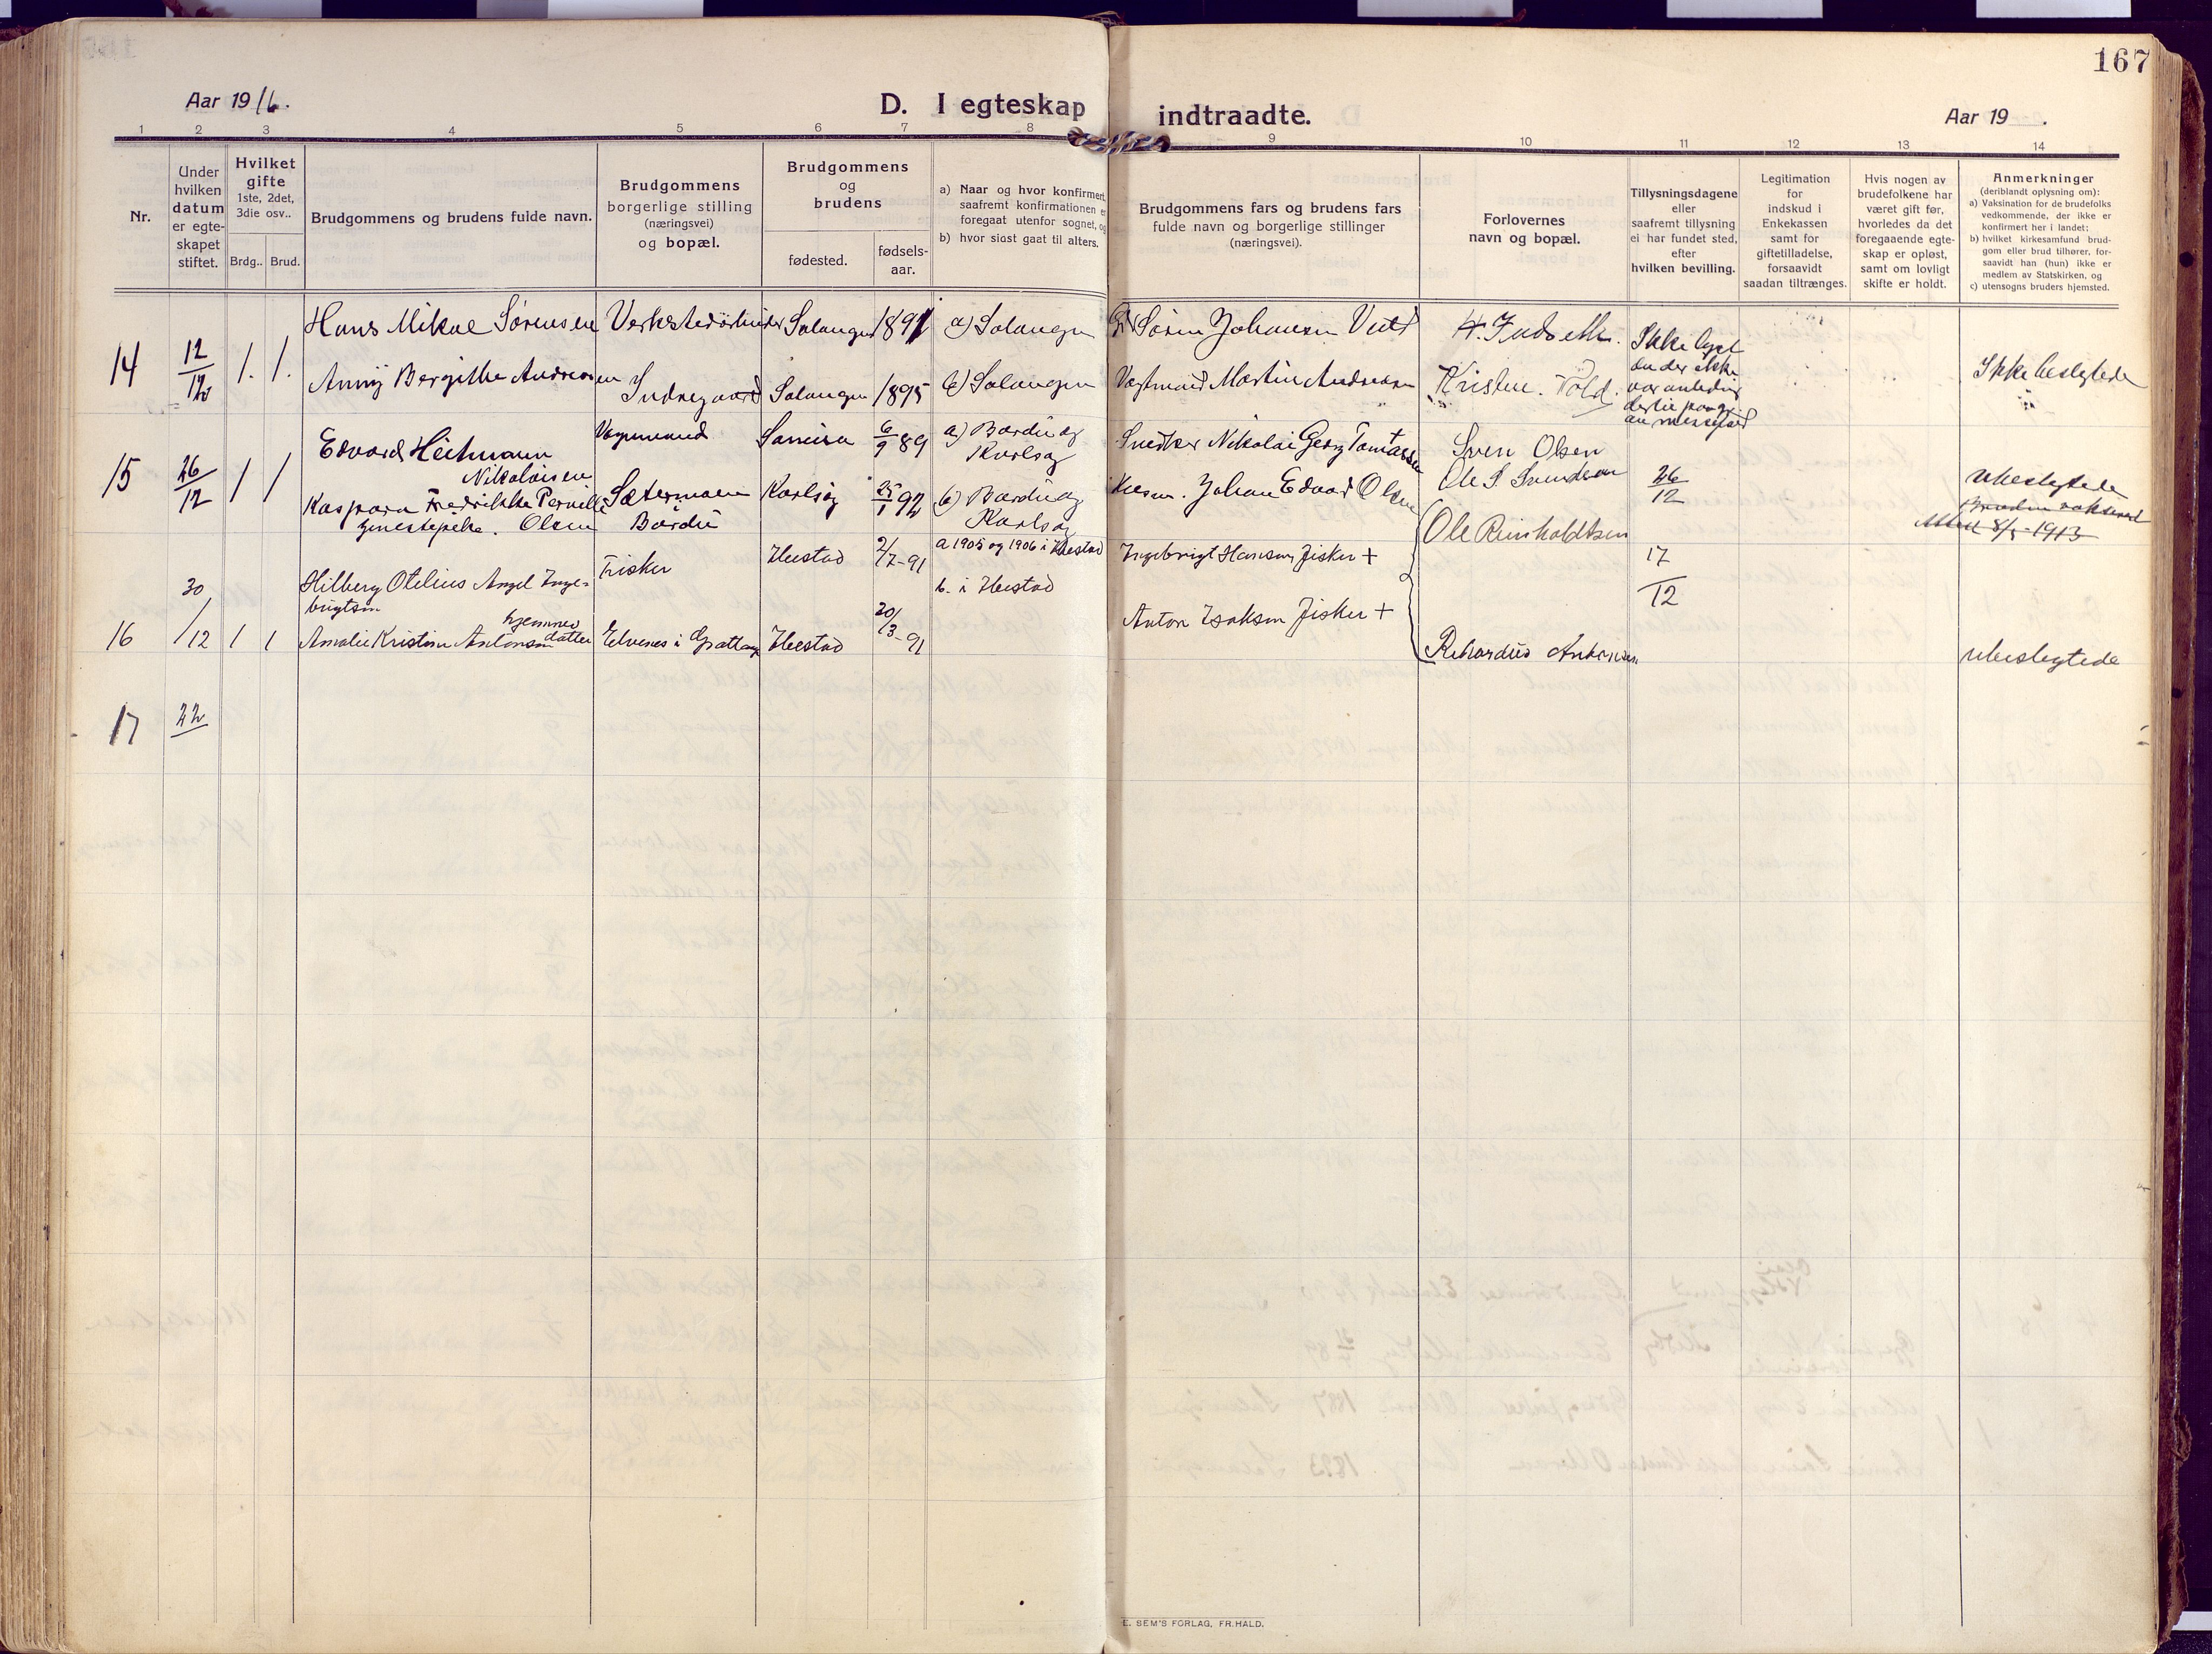 167
Aar 1916.
D. I egteskap indtraadte.
Aar 19 .
1 2 3 4 5 6 7 8 9 10 11 12 13 14
Nr.
Under hvilken datum er egteskapet stiftet.
Hvilket gifte 1ste, 2det, 3die osv..
Brdg.. Brud.
Brudgommens og brudens fulde navn.
Brudgommens borgerlige stilling (næringsvei) og bopæl.
Brudgommens og brudens
fødested.
fødsels-aar.
a) Naar og hvor konfirmert, saafremt konfirmationen er foregaat utenfor sognet, og
b) hvor sidst gaat til alters.
Brudgommens fars og brudens fars fulde navn og borgerlige stillinger (næringsvei).
Forlovernes navn og bopæl.
Tillysningsdagene eller saafremt tillysning ei har fundet sted, efter hvilken bevilling.
Legitimation for indskud i Enkekassen samt for giftetilladelse, forsaavidt saadan tiltrænges.
Hvis nogen av brudefolkene har været gift før, hvorledes da det foregaaende egteskap er opløst, samt om lovligt skifte er holdt.
Anmerkninger (deriblandt oplysning om):
a) Vaksination for de brudefolks vedkommende, der ikke er konfirmert her i landet;
b) hvilket kirkesamfund brudgom eller brud tilhører, forsaavidt han (hun) ikke er medlem av Statskirken, og
c) utensogns bruders hjemsted.
14 12/12 1. 1.
Hans Mikal Sørensen
Anny Bergithe Andreasen
Salangen 1891 a) Salangen
Salangen 1895 b) Salangen
Søren Johansen
Martin Andreasen
Kristen
Ikke lyst
Ikke beslegtede
15 26/12 1 1
Edvard Heitmann Nikolaisen
Kaspara Fredrikke Pernille Olsen
Vognmand
Sætermoen Bardu
6/9 89 a) Bardu og Karlsøy
Karlsøy 25/1 92 b) Bardu og Karlsøy
Snedker Nikolai Georg Tomassen
Johan Edvard Olsen
Sven Olsen
26/12
Ubeslegtede
8/5 1913
16 30/12 1 1
Hilberg Otelius Angel Ingebrigtsen
hjemmev datter
Amalie Kristine Antonsen
Fisker
Elvenes i Gratangen
Ibestad 2/7-91 a 1905 og 1906 i Ibestad
b. i Ibestad
Ibestad 20/3-91
Ingebrigt Hansen, Fisker +
Anton Isaksen Fisker +
Ole Reinholdtsen
Rikardus Antonsen
17/12
Ubeslegtede
17 22
E. SEM'S FORLAG, FR.HALD.